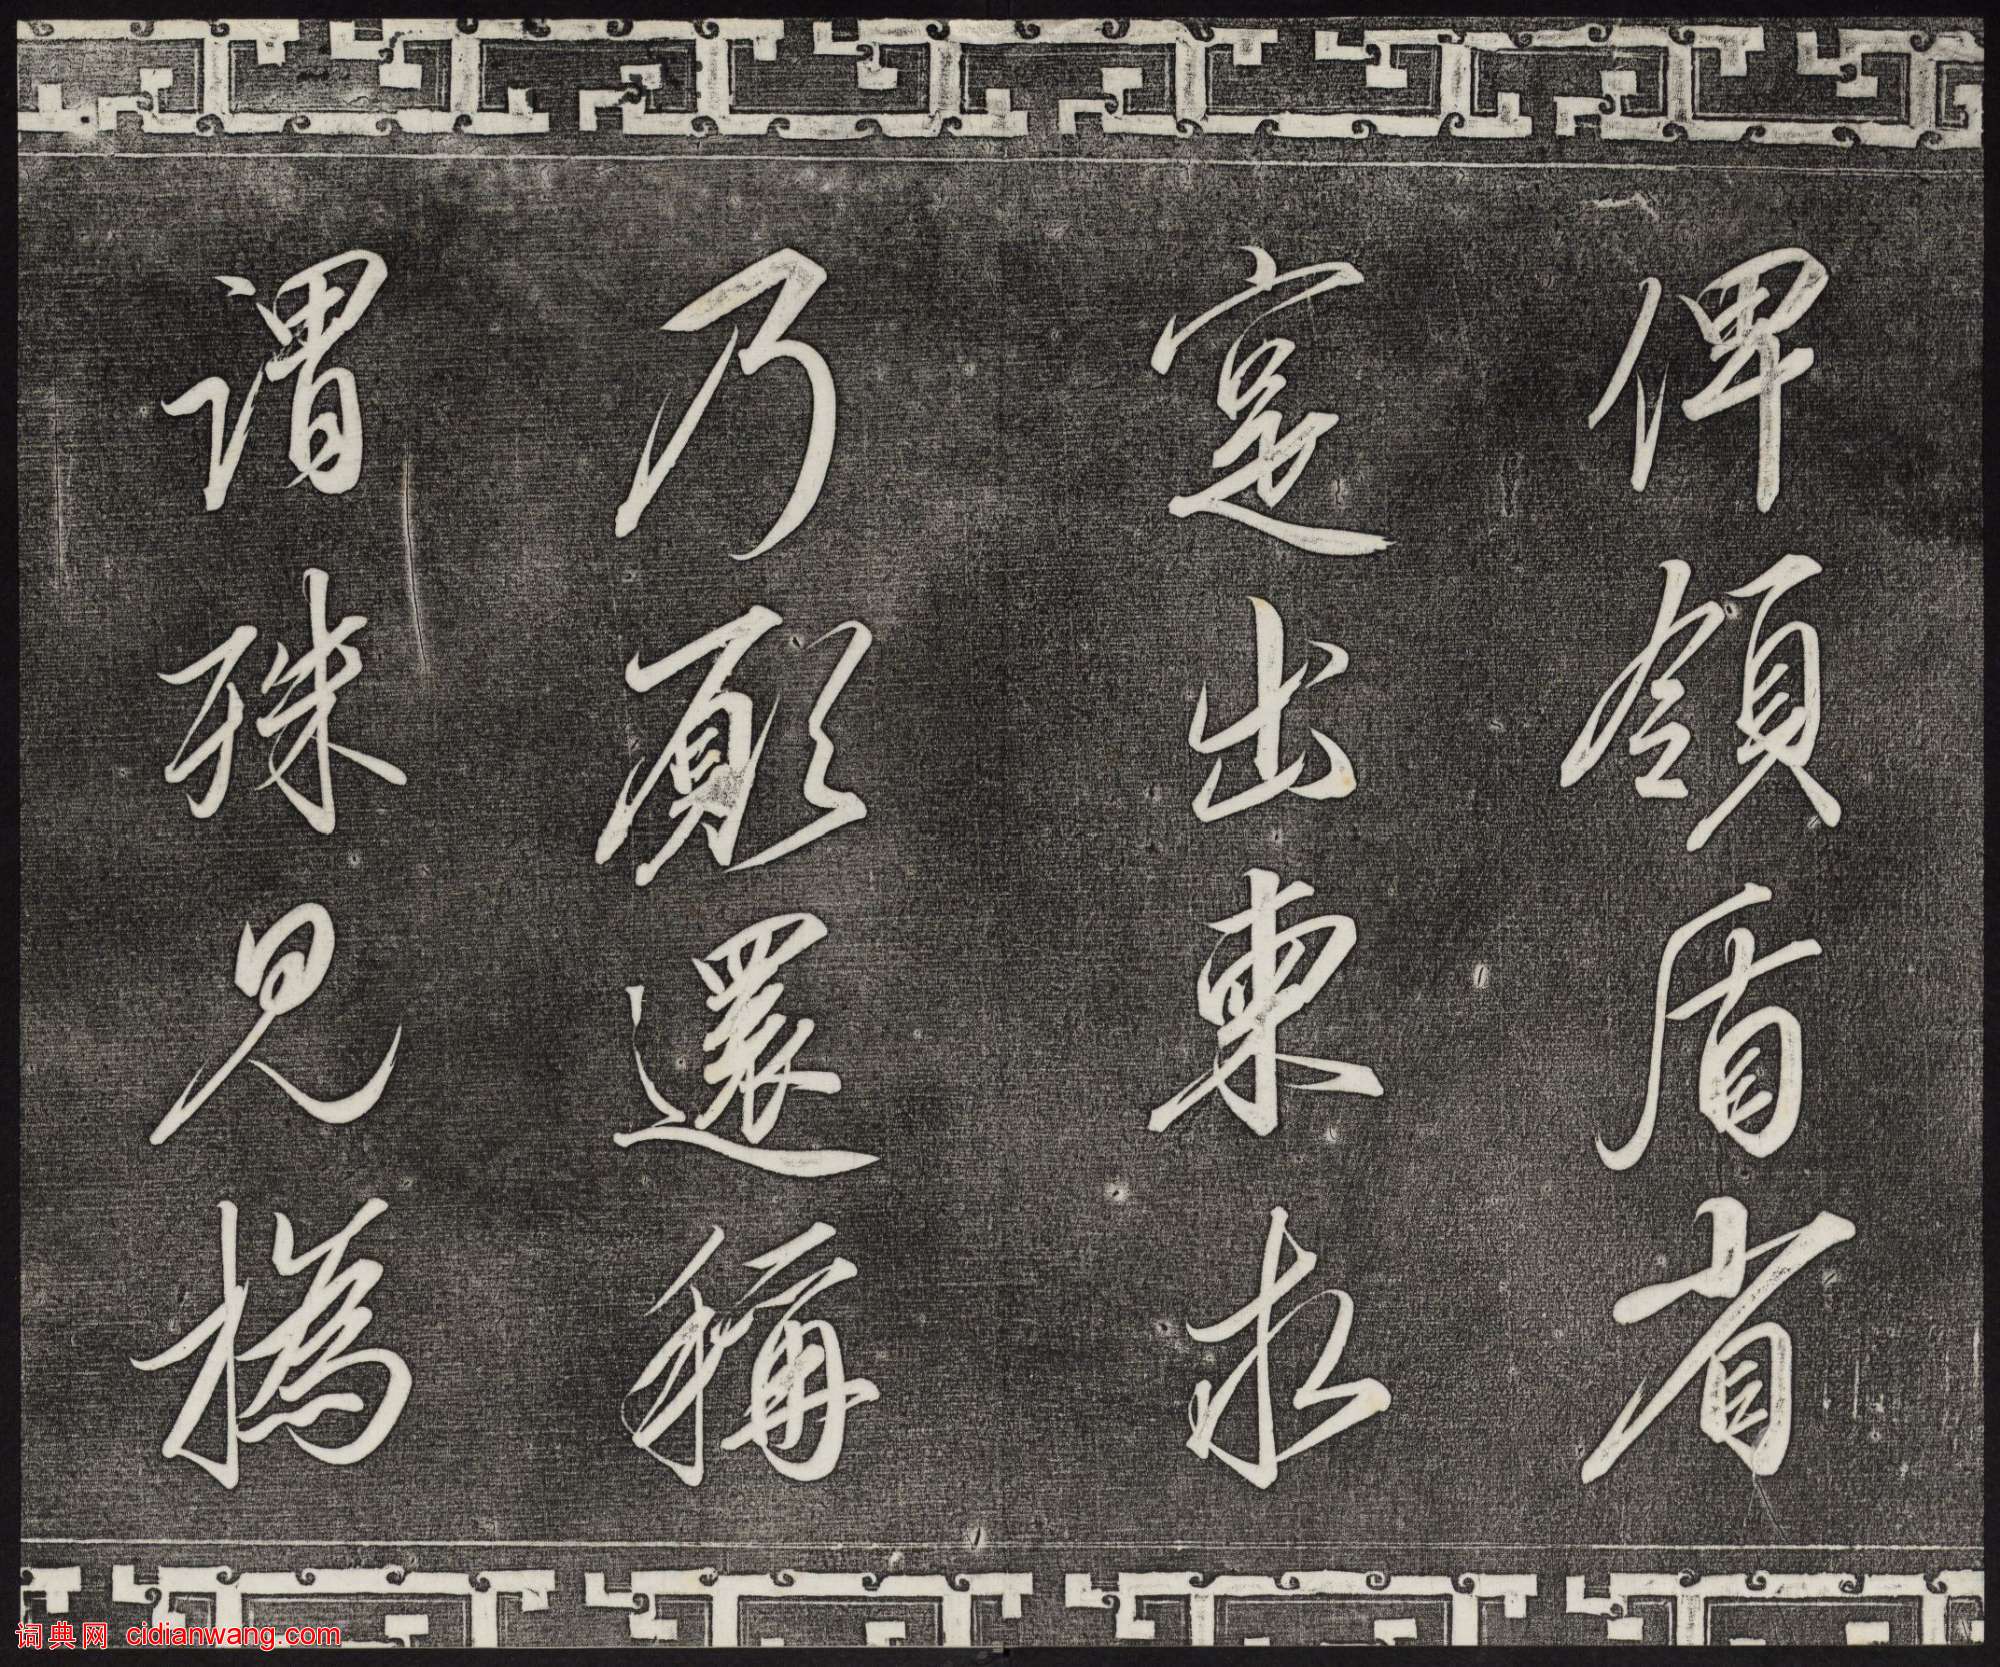 俾領盾省
寔出柬求
乃願還稱
謂殊見撝
词典网 cidianwang.com